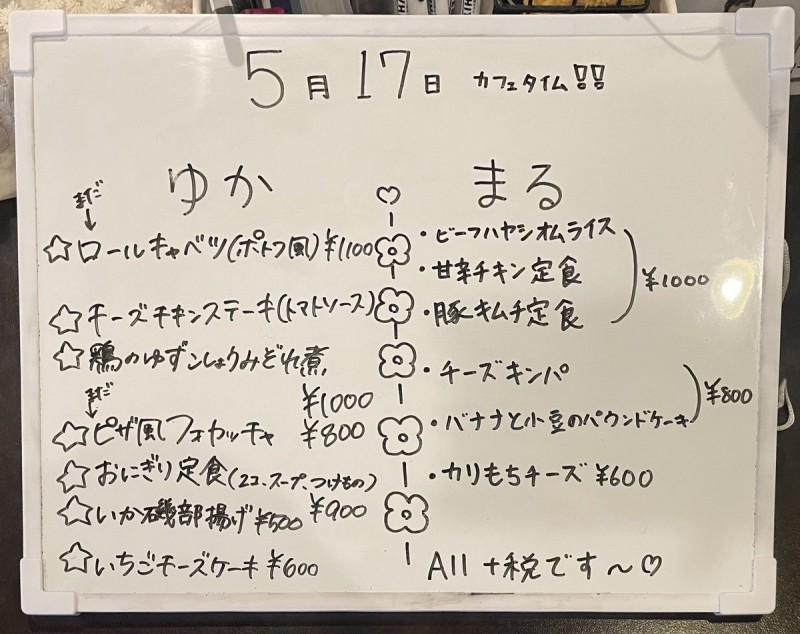 5月17日 カフェタイム!!
ゆか
まだ
↓
☆ロールキャベツ(ポトフ風)¥1100
☆チーズチキンステーキ(トマトソース)
☆鶏のゆずこしょうみぞれ煮
¥1000
まだ
↓
☆ピザ風フォカッチャ ¥800
☆おにぎり定食(2コ、スープ、つけもの)
¥900
☆いか磯部揚げ ¥500
☆いちごチーズケーキ ¥600
♡
まる
・ビーフハヤシオムライス
・甘辛チキン定食
・豚キムチ定食
¥1000
・チーズキンパ
・バナナと小豆のパウンドケーキ
¥800
・カリもちチーズ ¥600
All +税です〜♡